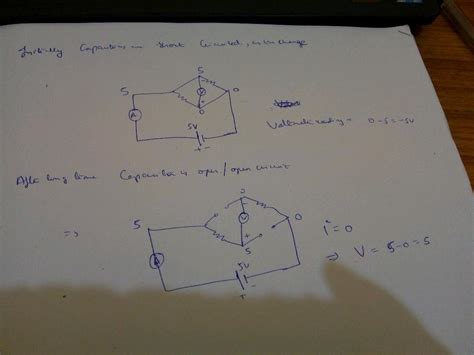 Initially Capacitor in short Circuited, in no charge
5
5
V
+
0
0
A
5V
+ -
Voltmeter reading = 0-5=-5V
After long time Capacitor is open/open circuit
⇒
5
0
-
V
+
5
0
A
5V
+ -
i=0
⇒ V = 5-0=5